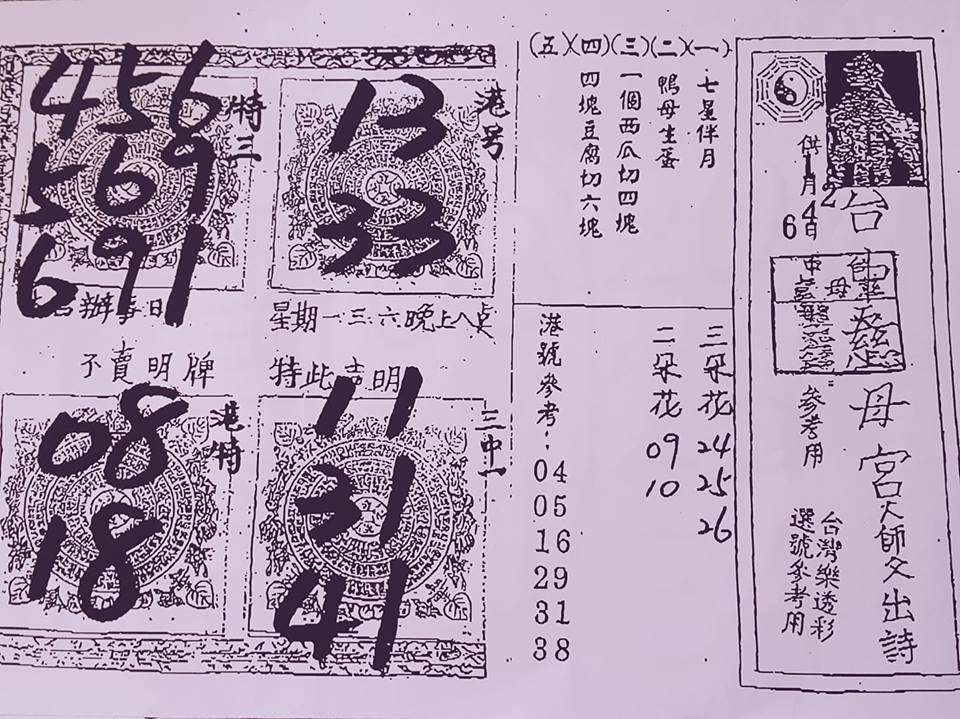 台中靈聖母宮大師父出詩
供12月4日
6
參考用
台灣樂透彩
選號參考用
(一)七星伴月
(二)鴨母生蛋
(三)一個西瓜切四塊
(四)四塊豆腐切六塊
(五)
三朵花 24 25 26
二朵花 09 10
港號參考:
04
05
16
29
31
38
港号
13
33
特三
456
569
691
星期一.三.六晚上八点
特此聲明
不賣明牌
三中一
11
31
41
港特
08
18